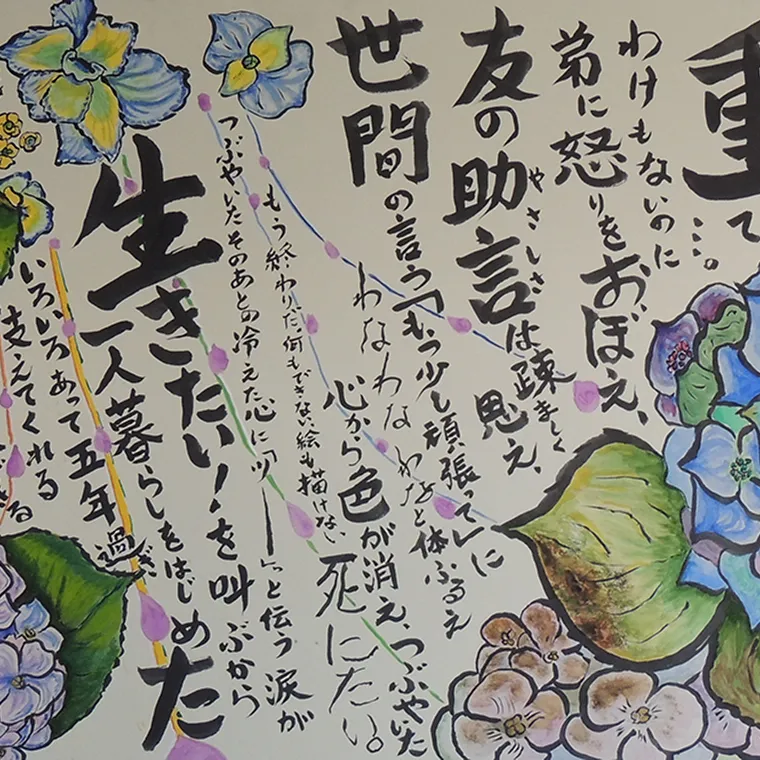 重て……。
わけもないのに
弟に怒りをおぼえ、
友の助言は疎ましく思え、
やさしさ
世間の言う「もう少し頑張って」に
わなわなわなわなと体ふるえ
心から色が消え、つぶやいた
もう終わりだ何もできない絵も描けない
死にたい。
つぶやいたそのあとの冷えた心に「ツー」と伝う涙が
生きたい！を叫ぶから
一人暮らしをはじめた
いろいろあって五年過ぎ
支えてくれる